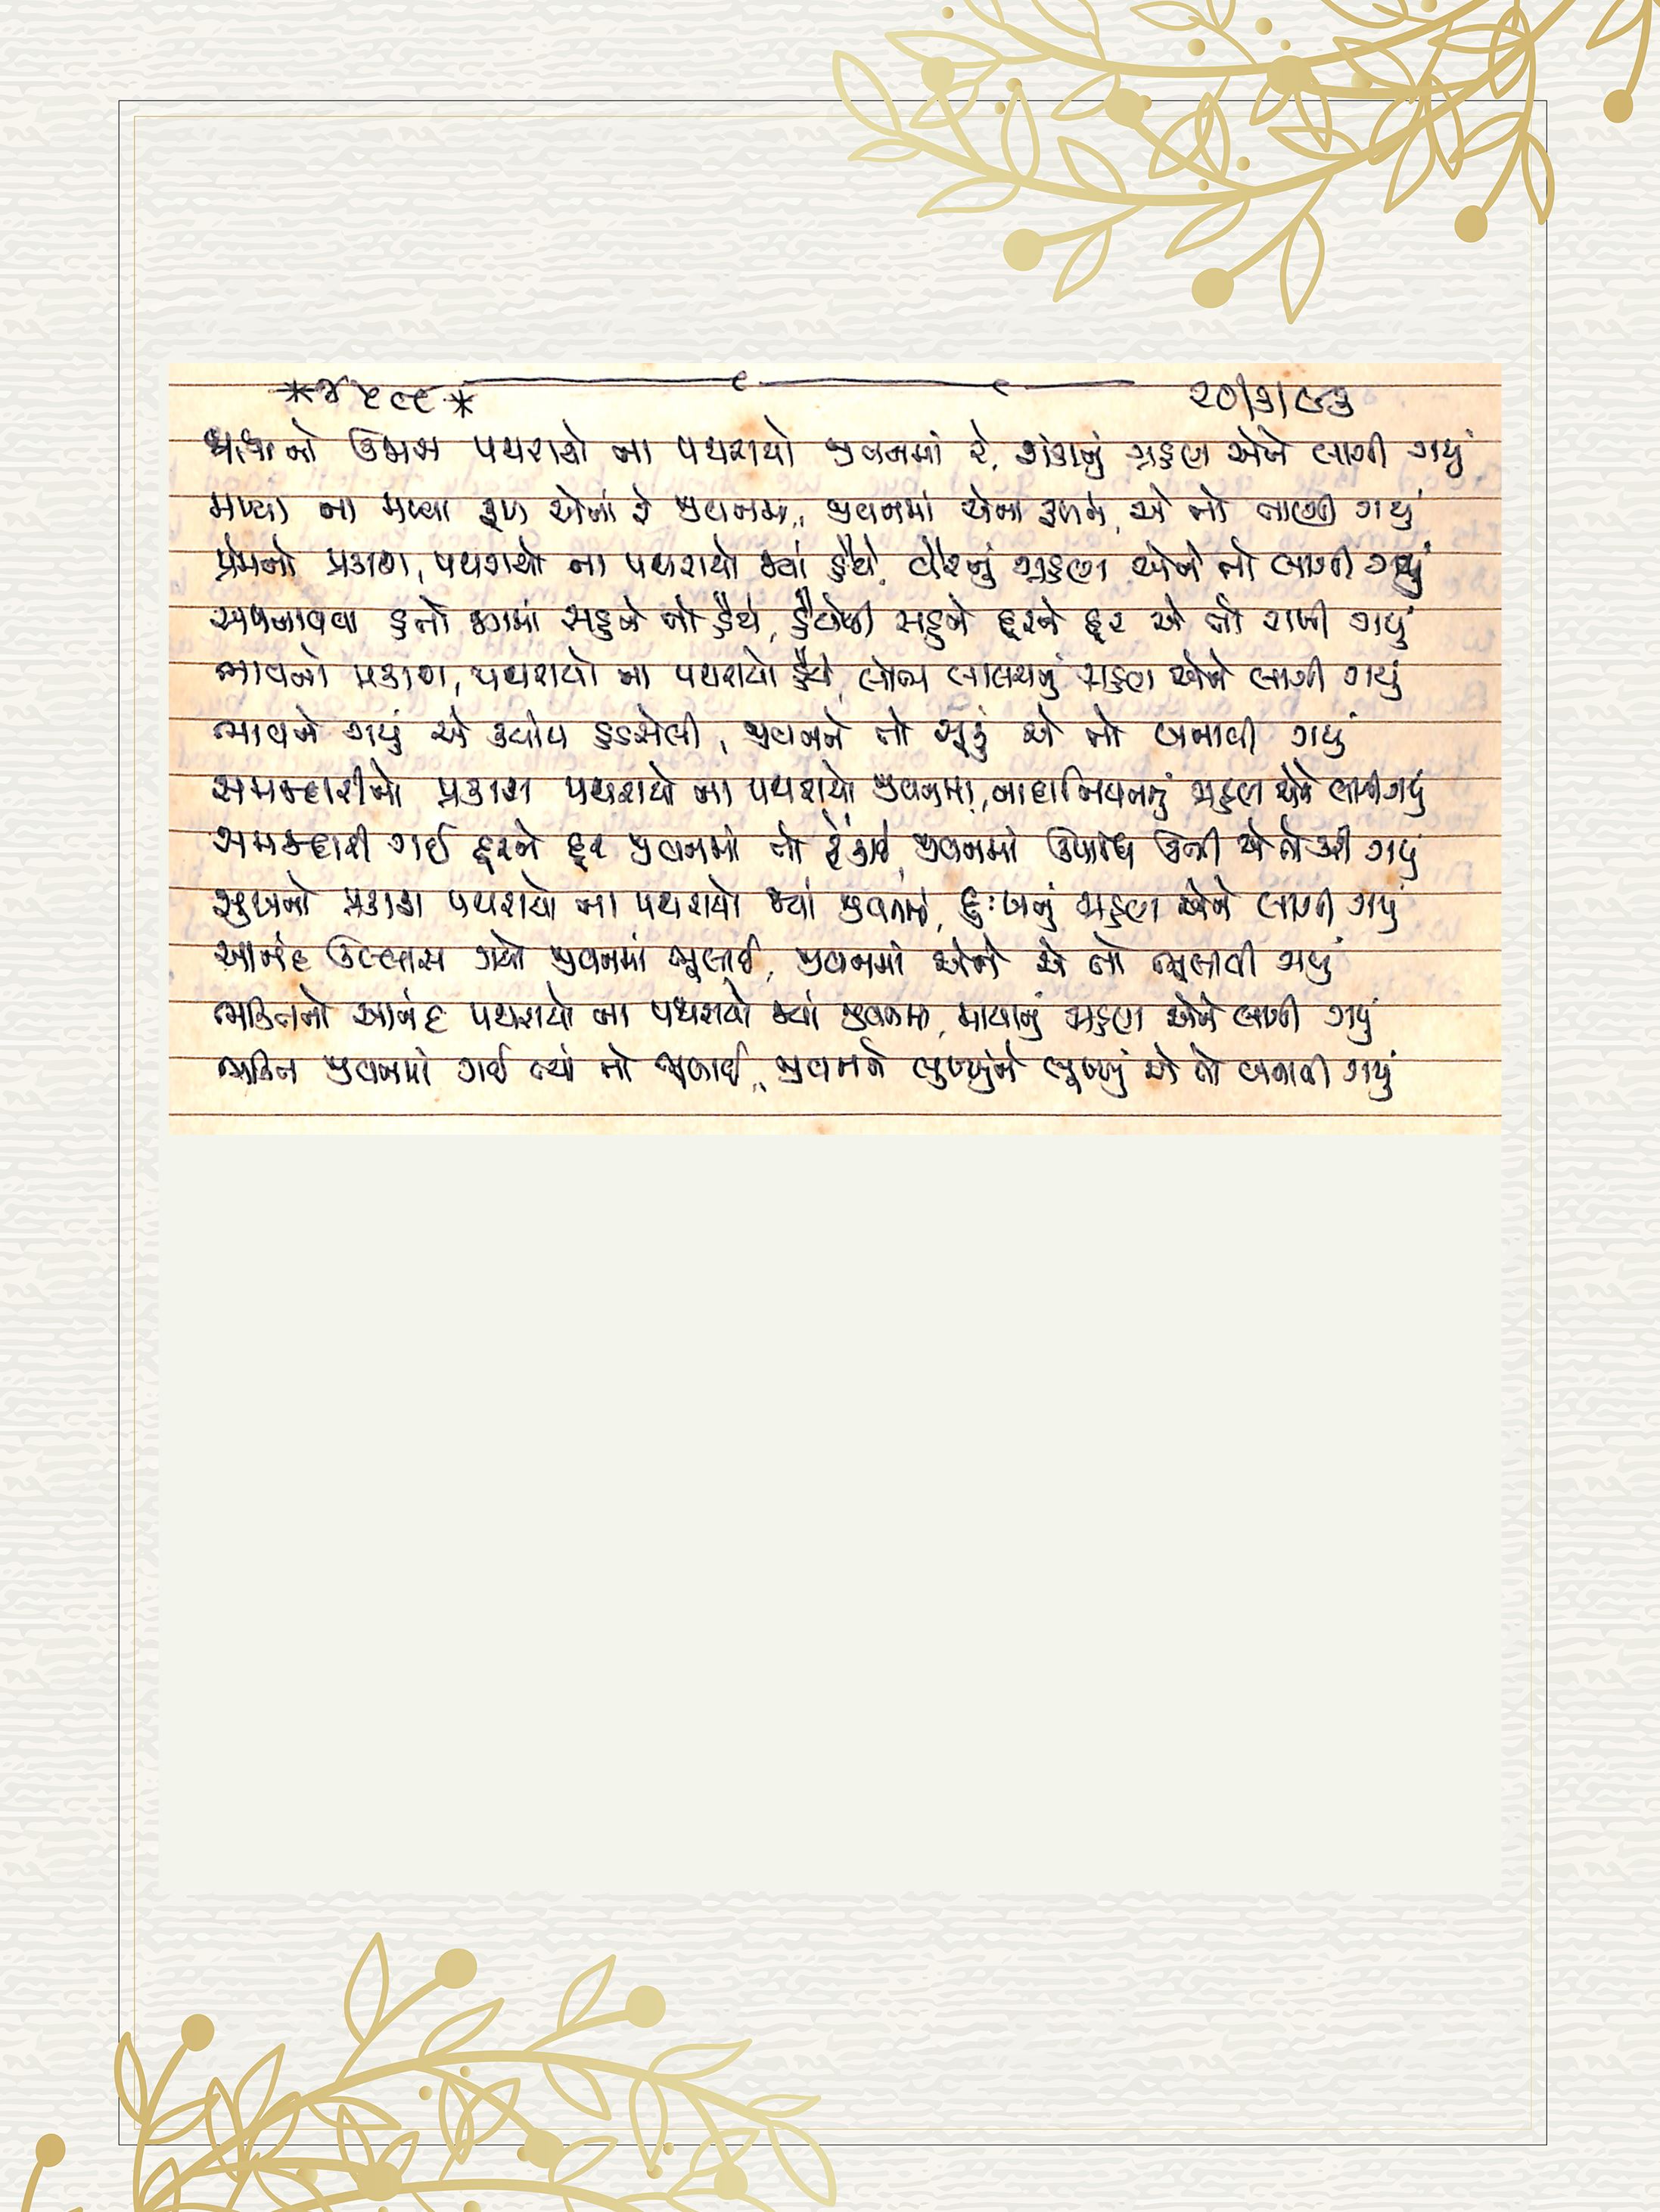 ૨૦/૩/૯૩
ઉજાસ પથરાયો ના પથરાયો જીવનમાં રે, શંકાનું ગ્રહણ એને લાગી ગયું
મળ્યા ના મળ્યા રૂપ એનાં રે જીવનમાં, જીવનમાં એના રૂપમાં, એ તો ગયું
પ્રેમનો પ્રકાશ, પથરાયો ના પથરાયો જ્યાં હૈયે, વૈરનું ગ્રહણ એને તો લાગી ગયું
અપનાવવા હતો જગમાં સહુને તો હૈયે, હૈયેથી સહુને દૂરને દૂર એ તો રાખી ગયું
ભાવનો પ્રકાશ, પથરાયો ના પથરાયો હૈયે, લોભ લાલચનું ગ્રહણ એને લાગી ગયું
ભાવને ગયું એ ક્યાંય હડસેલી, જીવનને તો સૂકું એ તો બનાવી ગયું
સમજદારીનો પ્રકાશ પથરાયો ના પથરાયો જીવનમાં, નાદાનિયતનું ગ્રહણ એને લાગી ગયું
સમજદારી ગઈ દૂરને દૂર જીવનમાં તો ફેંકાઈ, જીવનમાં ઉપાધિ ઊભી એ તો કરી ગયું
સુખનો પ્રકાશ પથરાયો ના પથરાયો જ્યાં જીવનમાં, દુઃખનું ગ્રહણ એને લાગી ગયું
આનંદ ઉલ્લાસ ગયો જીવનમાં ભૂલાઈ, જીવનમાં એને એ તો ભૂલાવી ગયું
ભક્તિનો આનંદ પથરાયો ના પથરાયો જ્યાં જીવનમાં, માયાનું ગ્રહણ એને લાગી ગયું
ભક્તિ જીવનમાં ગઈ ત્યાં તો ઝૂંટવાઈ, જીવનને લુખ્ખુંને લુખ્ખું એ તો બનાવી ગયું